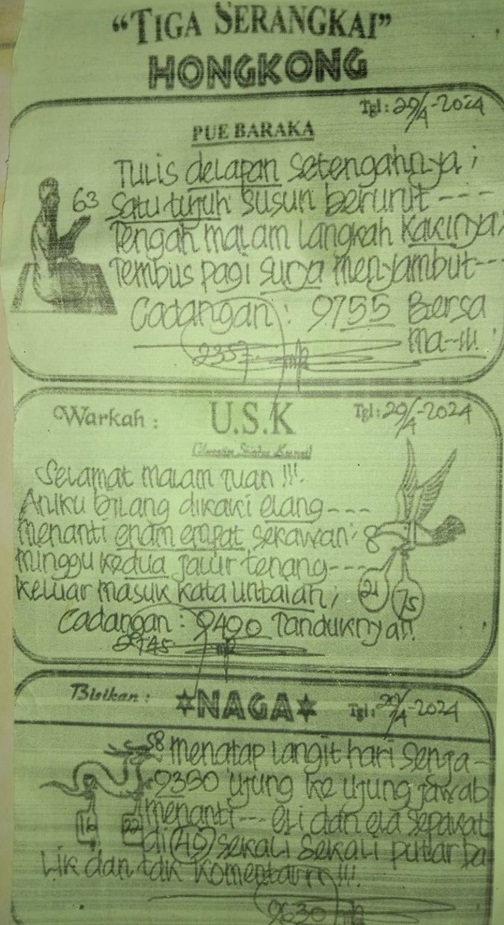 “TIGA SERANGKAI”
HONGKONG
Tgl: 29/4-2024
PUE BARAKA
63
Tulis delapan setengahnya;
Satu tujuh susun berurut ----
Tengah malam langkah kakinya,
Tembus pagi surya menyambut---
Cadangan: 9755 Bersa
ma--!!!
2357
Warkah : U.S.K Tgl: 29/4-2024
Selamat malam Tuan !!!
Aniku bilang dikaki elang---
menanti enam empat sekawan;
8
minggu kedua jalur tenang---
21 75
Keluar masuk kata untaian;
Cadangan: 9490 Tanduknya!!
2945
Bisikan : NAGA Tgl: 29/4-2024
58 menatap langit hari senja-
9350 ujung ke ujung jawab
menanti--- eli dan ela sepakat
16 22
di (45) sekali sekali putar ba
lik dan tdk komentar!!!
9630